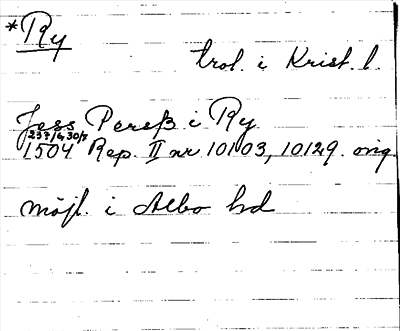 *Ry
trol. i Krist. l.
Jess Persß i Ry
237/4, 30/7
1504 Rep. II nr 10103, 10129. orig.
möjl. i Albo hd